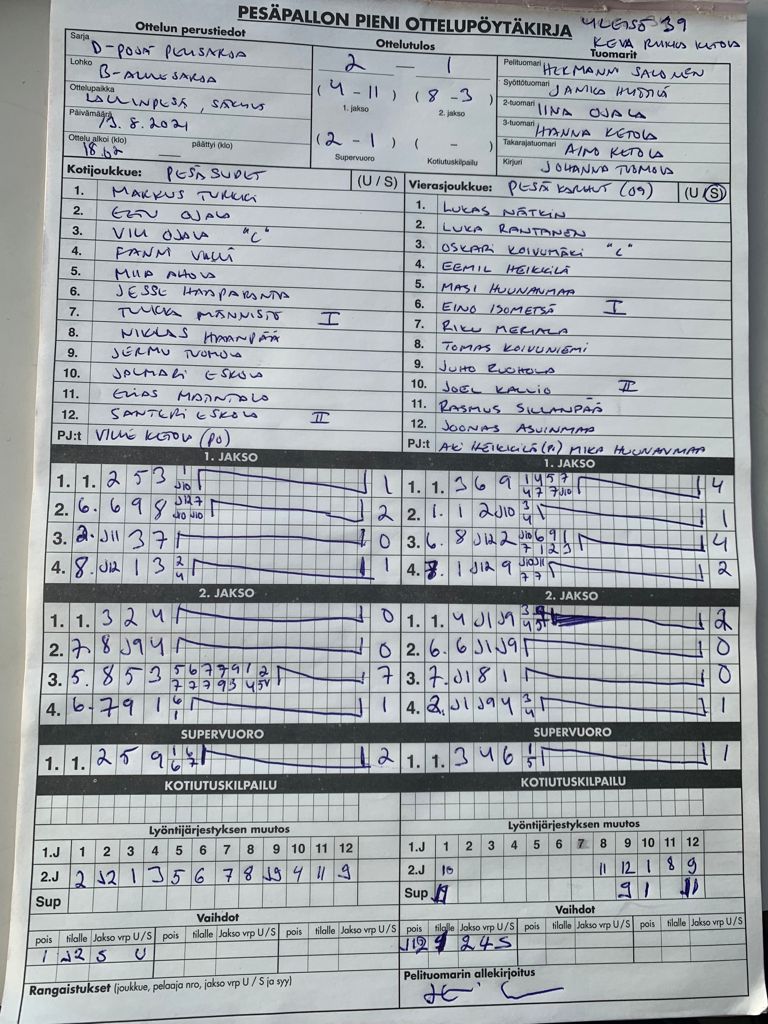 PESÄPALLON PIENI OTTELUPÖYTÄKIRJA
YLEISÖ 39
Ottelun perustiedot
Ottelutulos
Tuomarit
Sarja D-POJAT
Lohko B-ALKUSARJA
Ottelupaikka
Päivämäärä 13.8.2021
Ottelu alkoi (klo) päättyi (klo)
18.02
2 — 1
(4 - 11) (8 - 3)
1. jakso 2. jakso
(2 - 1) ( - )
Supervuoro Kotiutuskilpailu
Pelituomari HERMANNI SALONEN
Syöttötuomari
2-tuomari IINA OJALA
3-tuomari HANNA KETOLA
Takarajatuomari AINO KETOLA
Kirjuri JOHANNA TUOMOLA
Kotijoukkue: PESÄSUDET (U / S)
1. MARKKUS
2. EETU OJALA
3. VILI OJALA "C"
4. FANNI
5. MIIA AHOLA
6. JESSE HAAPARANTA
7. TUUKKA MÄNNISTÖ I
8. NIKLAS HAANPÄÄ
9. JERMU TUOMOLA
10. JALMARI ESKOLA
11. ELIAS
12. SANTERI ESKOLA II
PJ:t VILLE KETOLA (PJ)
Vierasjoukkue: PESÄKARHUT (09) (U / S)
1. LUKAS NÄTKIN
2. LUKA RANTANEN
3. OSKARI KOIVUMÄKI "C"
4. EEMIL HEIKKILÄ
5. MASI HUUNANMAA
6. EINO ISOMETSÄ I
7. RIKU MERIALA
8. TOMAS KOIVUNIEMI
9. JUHO RUOHOLA
10. JOEL KALLIO II
11. RASMUS SILLANPÄÄ
12. JOONAS ASUINMAA
PJ:t AKI HEIKKILÄ (PJ) MIKA HUUNANMAA
1. JAKSO
1. 1. 2 5 3 1 J10 1
2. 6. 6 9 8 2
3. 2. J11 3 7 0
4. 8. J12 1 3 2 4 1
2. JAKSO
1. 1. 3 2 4 0
2. 7. 8 J9 4 0
3. 5. 8 5 3 7
4. 6. 7 9 1 6 1 1
SUPERVUORO
1. 1. 2 5 9 1 6 6 7 2
KOTIUTUSKILPAILU
Lyöntijärjestyksen muutos
1.J 1 2 3 4 5 6 7 8 9 10 11 12
2.J 2 J2 1 3 5 6 7 8 J9 4 11 9
Sup
Vaihdot
pois tilalle Jakso vrp U / S pois tilalle Jakso vrp U / S pois tilalle Jakso vrp U / S
1 J2 S U
Rangaistukset (joukkue, pelaaja nro, jakso vrp U / S ja syy)
1. JAKSO
1. 1. 3 6 9 1 4 5 7 4 7 7 J10 4
2. 1. 1 2 J10 3 4 1
3. 6. 8 J12 2 J10 6 9 1 7 1 2 3 4
4. 1 J12 9 J10 J11 7 7 2
2. JAKSO
1. 1. 4 J1 J9 2
2. 6. 6 J1 J9 0
3. 7. J1 8 1 0
4. 2. J1 J9 4 3 4 1
SUPERVUORO
1. 1. 3 4 6 1 5 1
KOTIUTUSKILPAILU
Lyöntijärjestyksen muutos
1.J 1 2 3 4 5 6 7 8 9 10 11 12
2.J 10 11 12 1 8 9
Sup 9 1 11
Vaihdot
pois tilalle Jakso vrp U / S pois tilalle Jakso vrp U / S pois tilalle Jakso vrp U / S
J12 2 4 S
Pelituomarin allekirjoitus